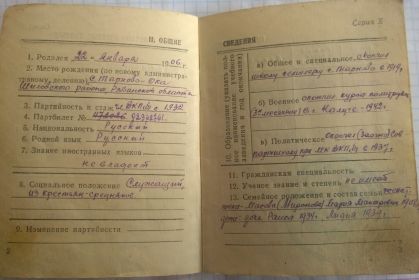 II. ОБЩИЕ
1. Родился 22 января 1906 г.
2. Место рождения (по новому администра-
тивному делению) с. Тырново-Ока
Шиловского района Рязанской области
3. Партийность и стаж чл. ВКП(б) с 1932
4. Партбилет №
5. Национальность Русский
6. Родной язык Русский
7. Знание иностранных языков
не владеет
8. Социальное положение Служащий,
из крестьян-средняков.
9. Изменение партийности
2
Серия Б
СВЕДЕНИЯ
10. Образование (указать пол-
ное наименование учебного
заведения и год окончания)
а) Общее и специальное окончил
школу в 1919,
б) Военное окончил курсы политруков
3х месячные в г. Калуге - 1942.
в) Политическое окончил
парт при МК ВКП(б) в 1937.
11. Гражданская специальность
12. Ученое звание и степень не имеет
13. Семейное положение и состав семьи
Мария
Раиса 1934. Лидия 1937.
3